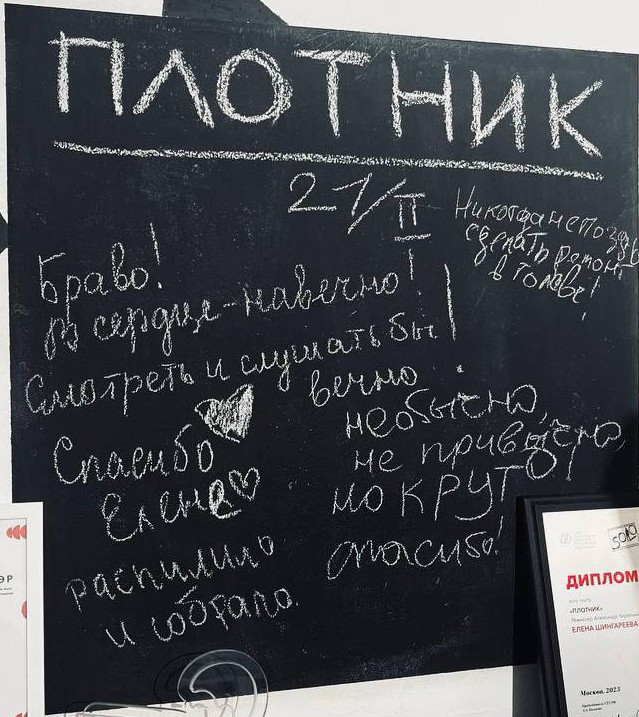 ПЛОТНИК
21/II
Никогда не поздно
сделать ремонт
в голове!
Браво!
В сердце-навечно!
Смотреть и слушать бы
вечно!
Спасибо
Елена
необычно,
не привычно,
но КРУТО!
спасибо!
распилило
и собрало.
ЭР
SOLO
ДИПЛОМ
«ПЛОТНИК»
Режиссер Александр
ЕЛЕНА ШИНГАРЕЕВА
Москва, 2023